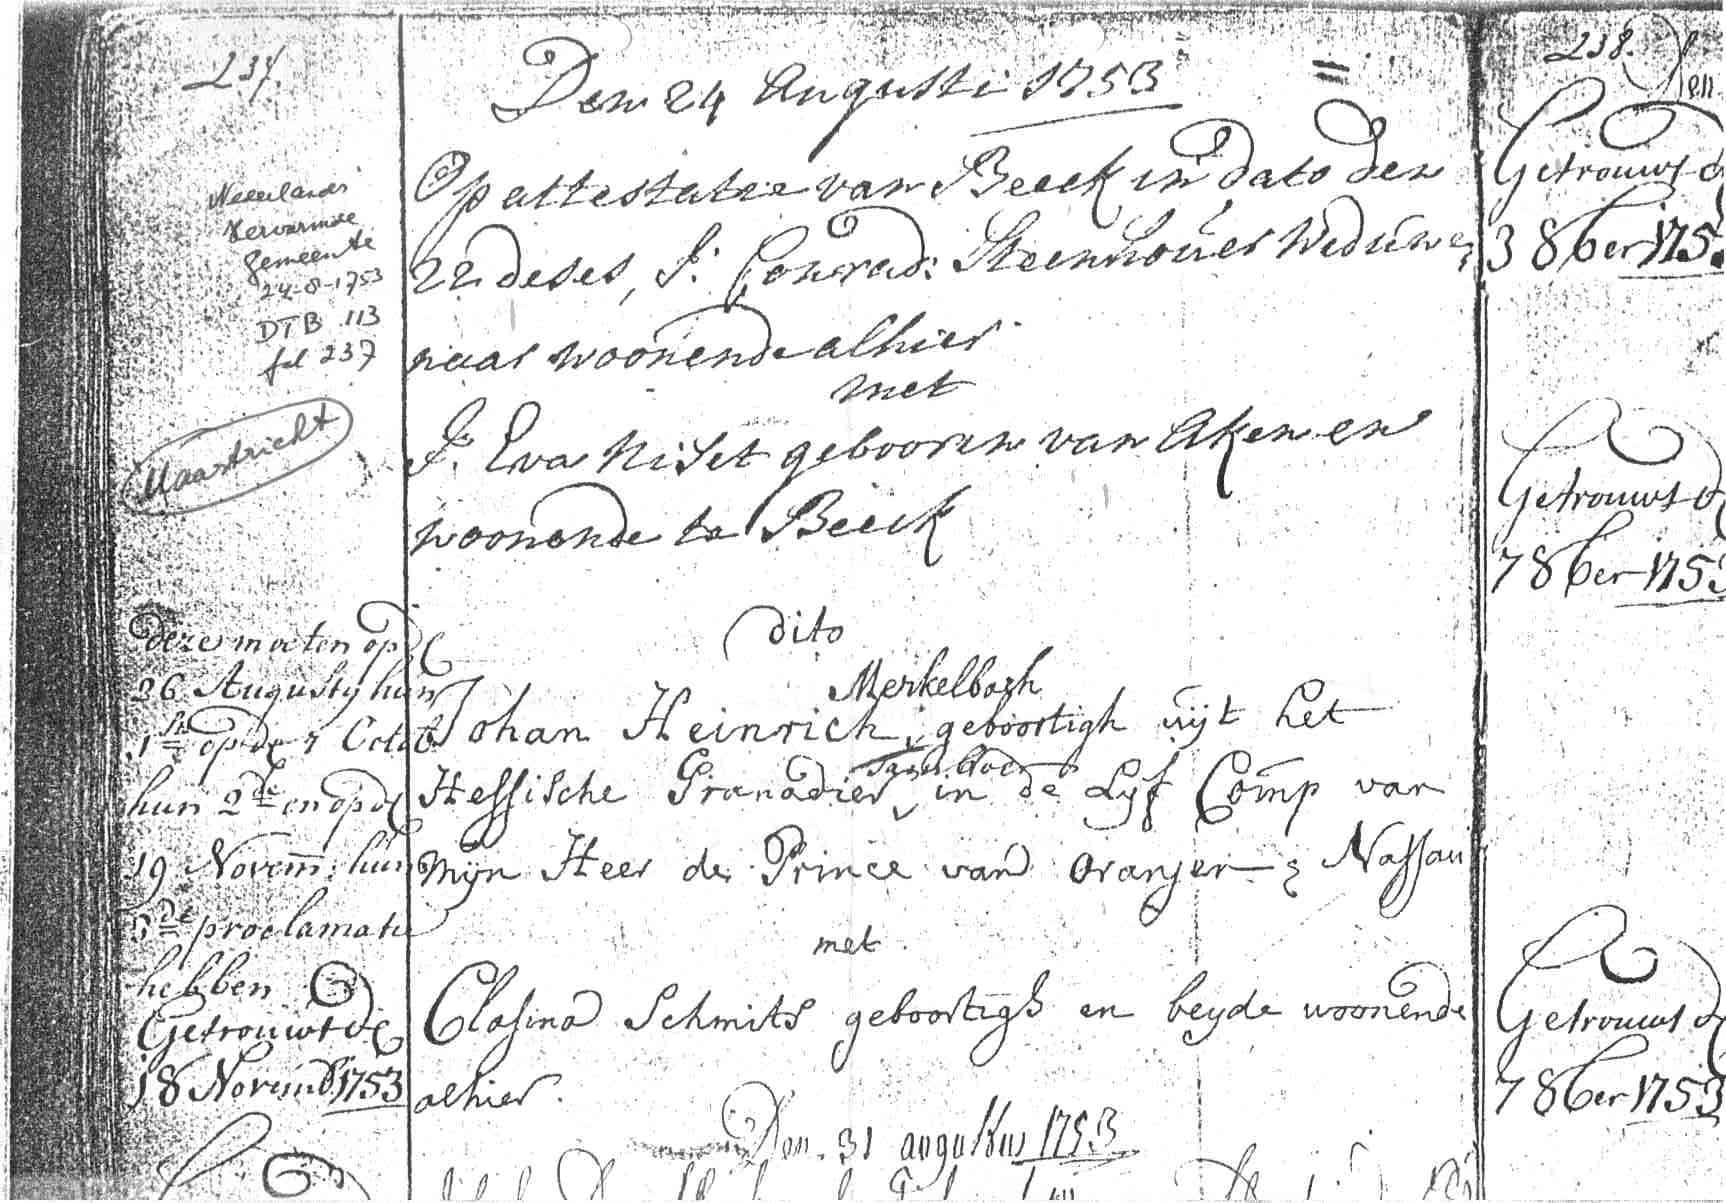 237.
Nederlands
Hervormde
gemeente
24-8-1753
DTB 113
fol 237
Maastricht
Den 24 Augusti 1753
Op attestatie van Beeck in dato den
22 deses, J: Conrad: Steenhouer Weduwe,
naar woonende alhier
met
J. Eva Niset gebooren van Aken en
woonende te Beeck
deze moeten op de
26 Augusty hun
1ste op de 7 Octob
hun 2de en op de
19 Novem: hun
3de proclamatie
hebben
Getrouwt de
18 Novemb 1753
dito
Merkelbach
Johan Heinrich, geboortigh uijt het
Hessische Granadier in de Lyf Comp van
Mijn Heer de Prince van Oranjen & Nassau
met
Clasina Schmits geboortigh en beyde woonende
alhier.
Den 31 augustus 1753
238.
Getrouwt d
3 8ber 175
Getrouwt d
7 8ber 1753
Getrouwt d
7 8ber 1753